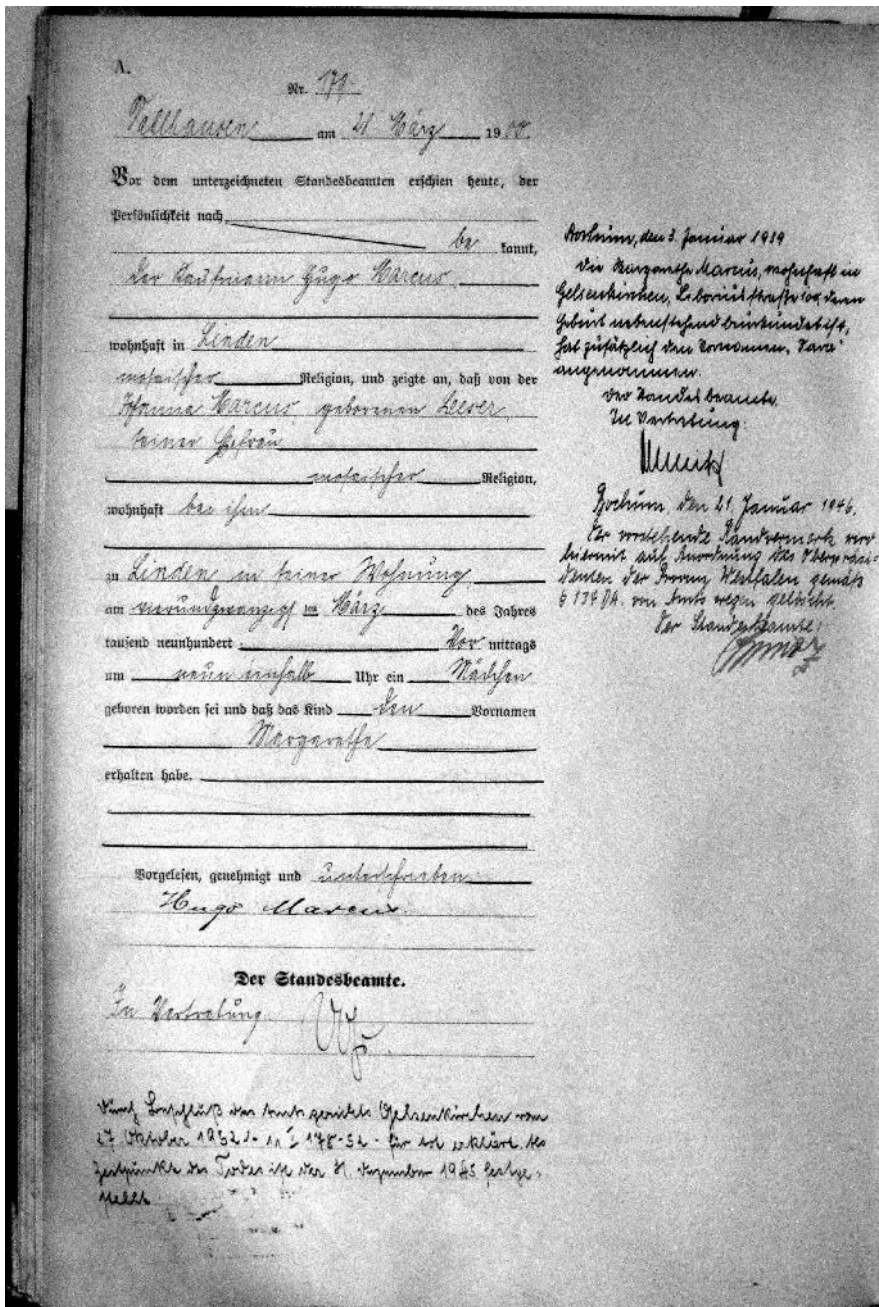 A.
Nr. 179.
am 28 März 1900.
Vor dem unterzeichneten Standesbeamten erschien heute, der
Persönlichkeit nach
be kannt,
der Kaufmann Hugo Marcus
wohnhaft in Linden
mosaischer Religion, und zeigte an, daß von der
Marcus, geborenen
seiner Ehefrau
mosaischer Religion,
wohnhaft bei ihm
zu Linden in seiner Wohnung
am vierundzwanzigs ten März des Jahres
tausend neunhundert Vor mittags
um neun einhalb Uhr ein Mädchen
geboren worden sei und daß das Kind den Vornamen
Margarethe
erhalten habe.
Vorgelesen, genehmigt und unterschrieben
Hugo Marcus.
Der Standesbeamte.
In Vertretung
Durch Beschluß des Amtsgerichts Gelsenkirchen vom
27 Oktober 1952 - 11 II 178-52 - für tot erklärt. Als
Zeitpunkt des Todes ist der 31. Dezember 1945 festge-
stellt.
Bochum, den 3. Januar 1939
Die Margarethe Marcus, wohnhaft in
Gelsenkirchen, Liboriusstraße 100, deren
Geburt nebenstehend beurkundet ist,
hat zusätzlich den Vornamen "Sara"
angenommen.
Der Standesbeamte.
In Vertretung:
Bochum, den 21. Januar 1946.
Der vorstehende Randvermerk wird
hiermit auf Anordnung des Oberpräsi-
denten der Provinz Westfalen gemäß
§ 134 DA. von Amts wegen gelöscht.
Der Standesbeamte: